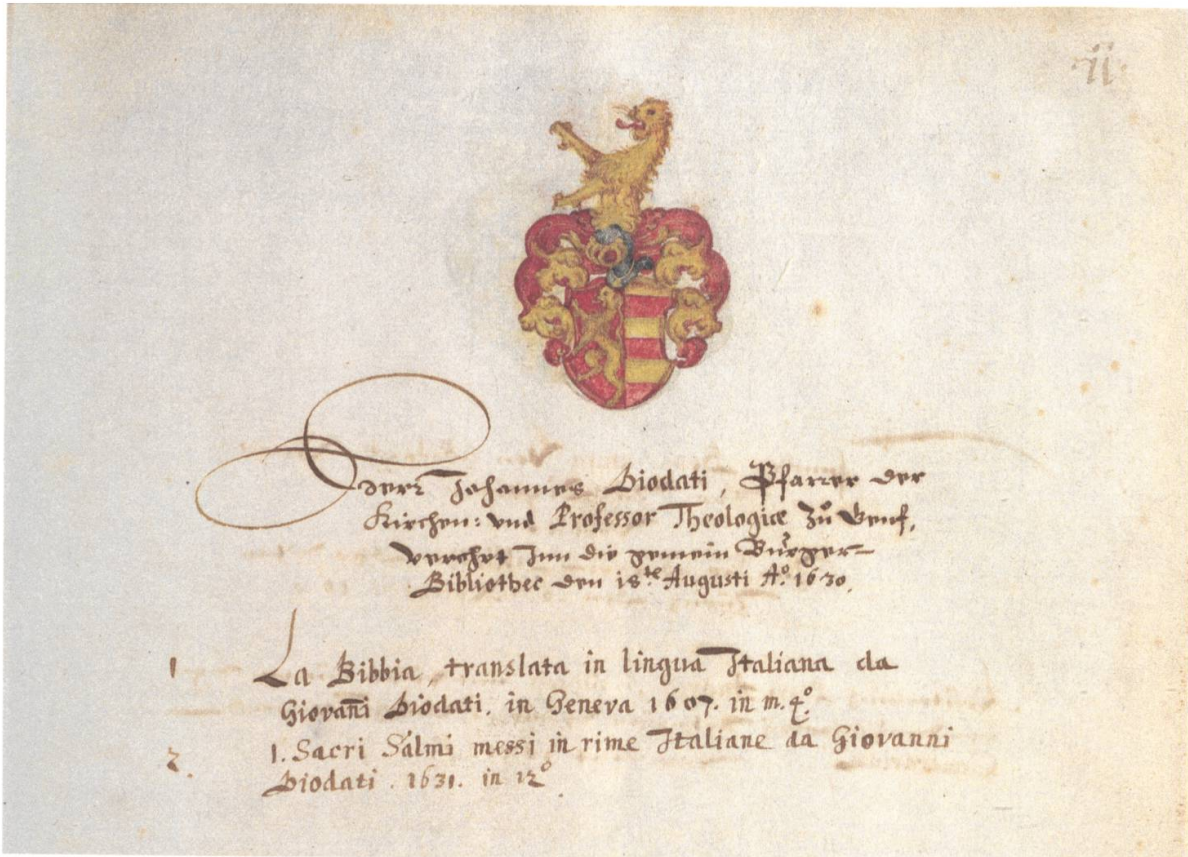 ii
Herr Johannes Diodati, Pfarrer der
Kirchen: vnd Professor Theologiæ Zů Genf,
verehrt Inn die gemein Burger-
Bibliothec den 18.te Augusti Aº. 1630.
1 La Bibbia, translata in lingua Italiana da
Giovan̄i Diodati, in Geneva 1607. in m. 4º.
2. I. Sacri Salmi messi in rime Italiane da Giovanni
Diodati. 1631. in 12º